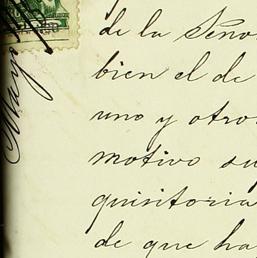 de la Seño
bien el de
uno y otro
motivo su
quisitoria
de que ha
May